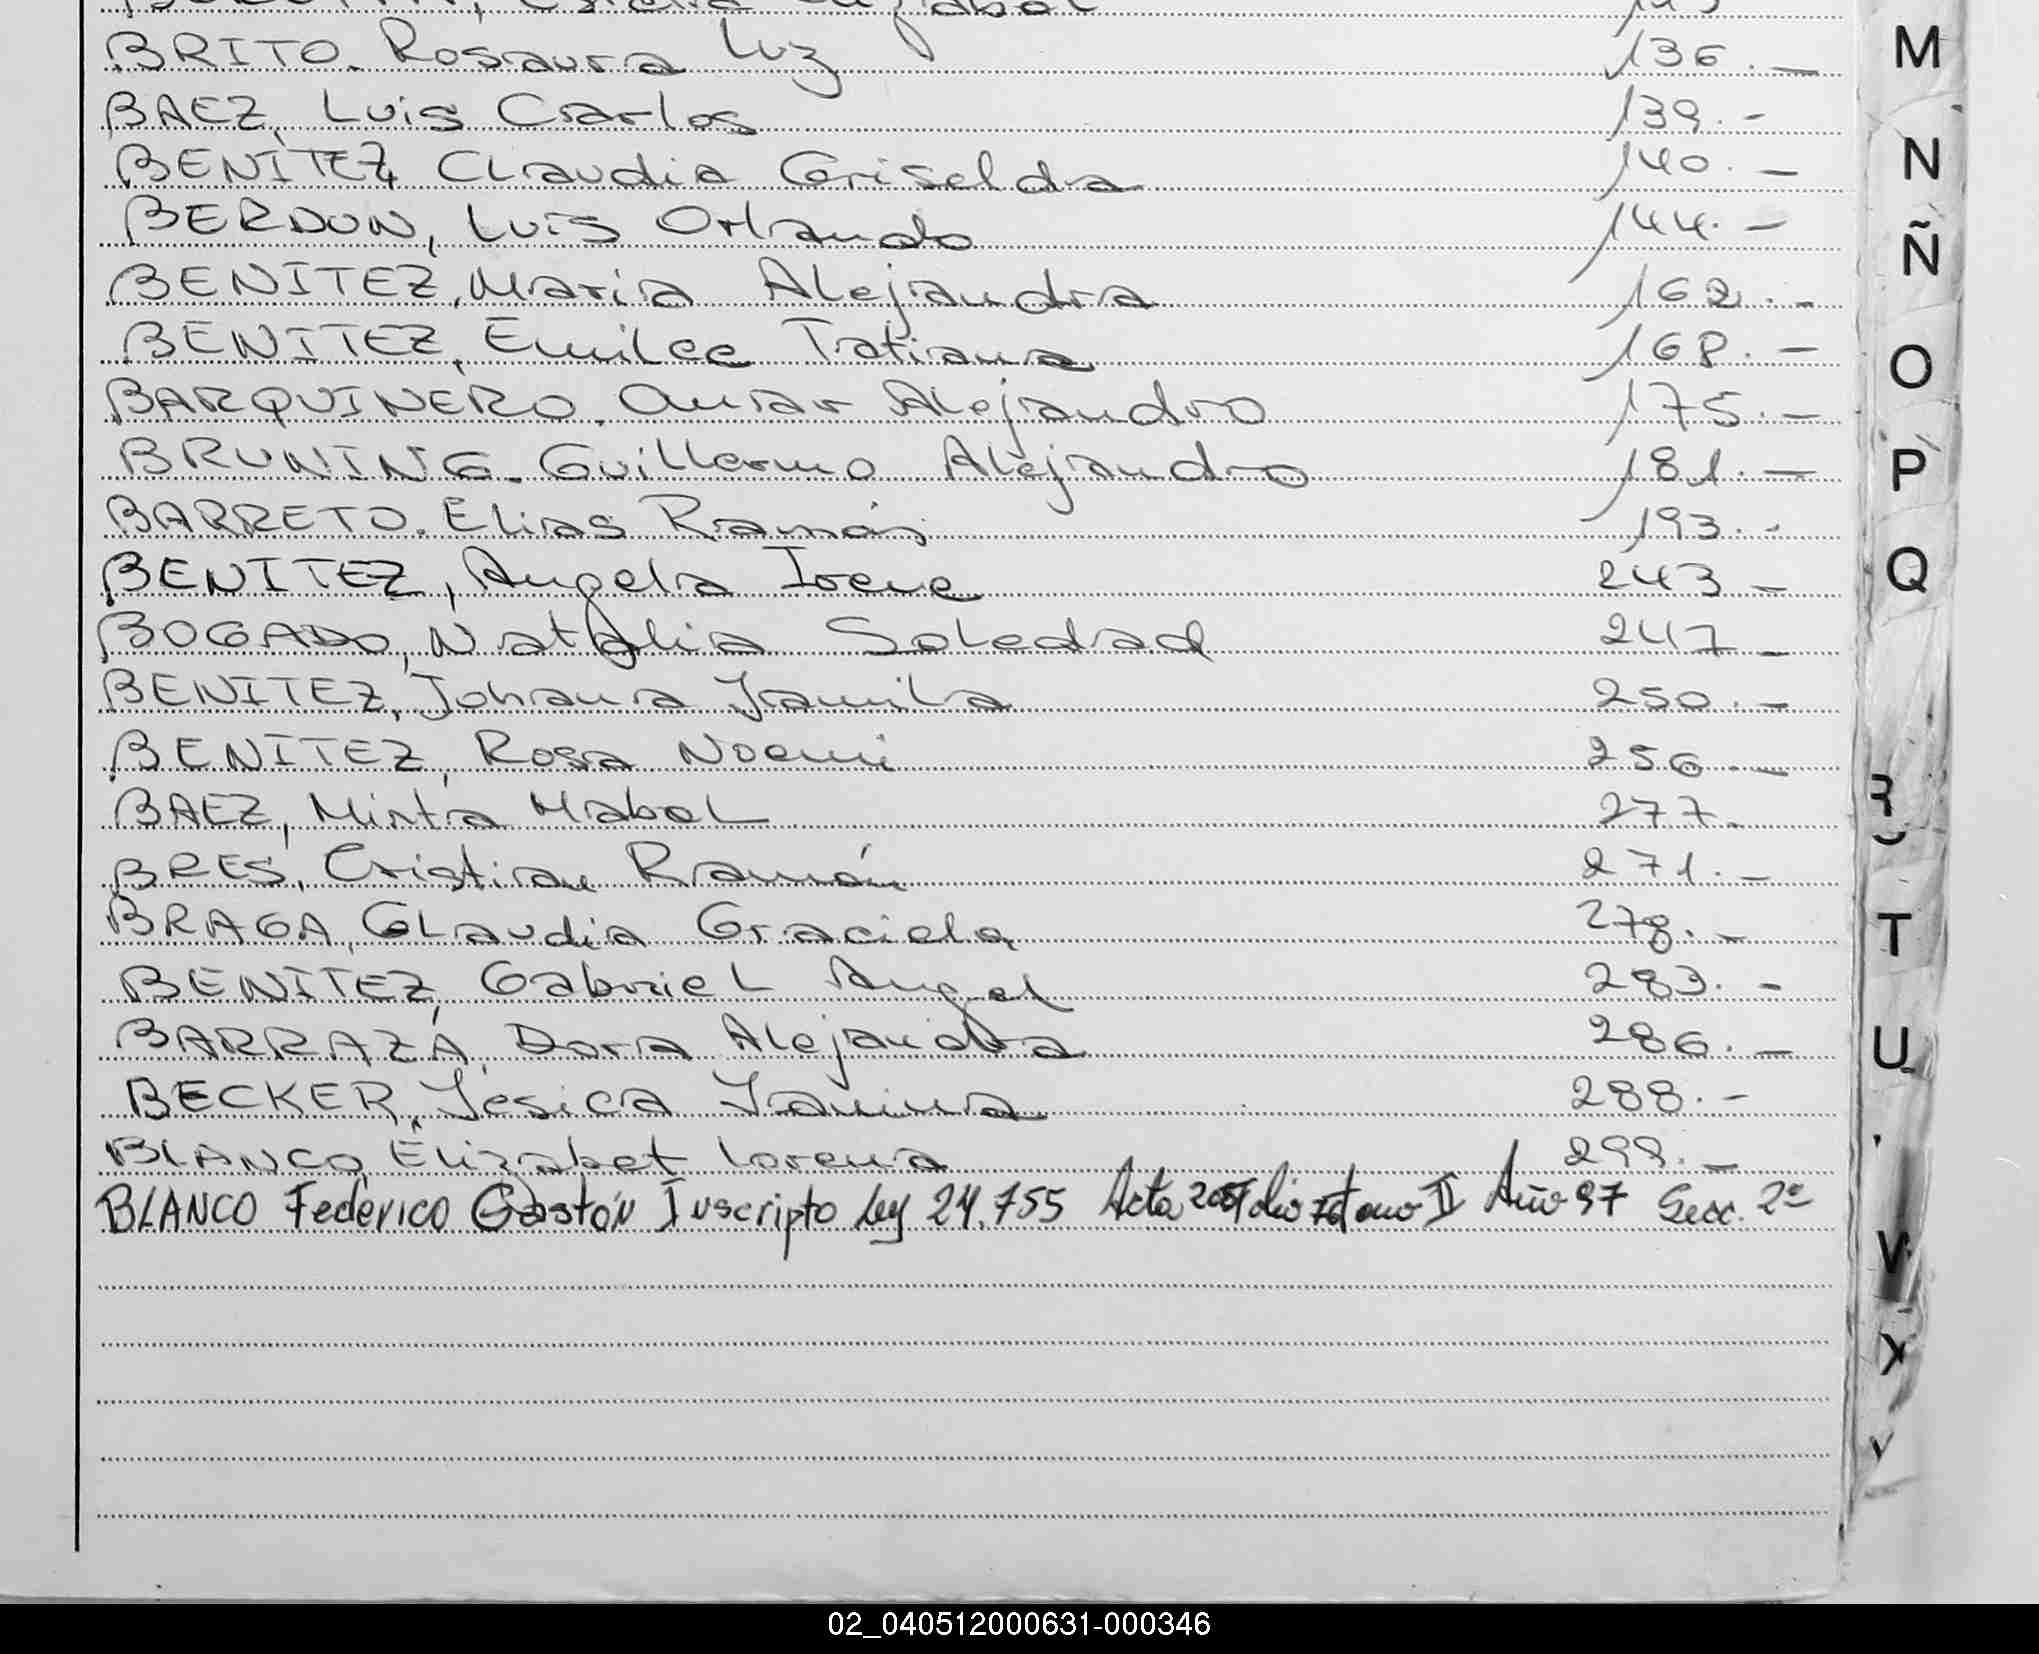 BRITO. Rosaura Luz 136.-
BAEZ, Luis Carlos 139.-
BENÍTEZ, Claudia Griselda 140.-
BERDUN, Luis Orlando 144.-
BENITEZ, Maria Alejandra 162.-
BENITEZ, Emilce Tatiana 168.-
BARQUINERO, Omar Alejandro 175.-
BRUNING. Guillermo Alejandro 181.-
BARRETO. Elias Ramón 193.-
BENITEZ, Angela Irene 243-
BOGADO, Natalia Soledad 247-
BENITEZ, Johana Yamila 250.-
BENÍTEZ, Rosa Noemi 256.-
BAEZ, Mirta Mabel 277.
BRES, Cristian Ramón 271.-
BRAGA, Claudia Graciela 278.-
BENITEZ, Gabriel Angel 283.-
BARRAZA, Dora Alejandra 286.-
BECKER, Yesica Yanina 288.-
BLANCO, Elizabet Lorena 299.-
BLANCO Federico Gastón Inscripto ley 24.755 Acta Folio tomo II Año 97 Secc. 2º
M
N
Ñ
O
P
Q
R
T
U
V
X
Y
02_040512000631-000346